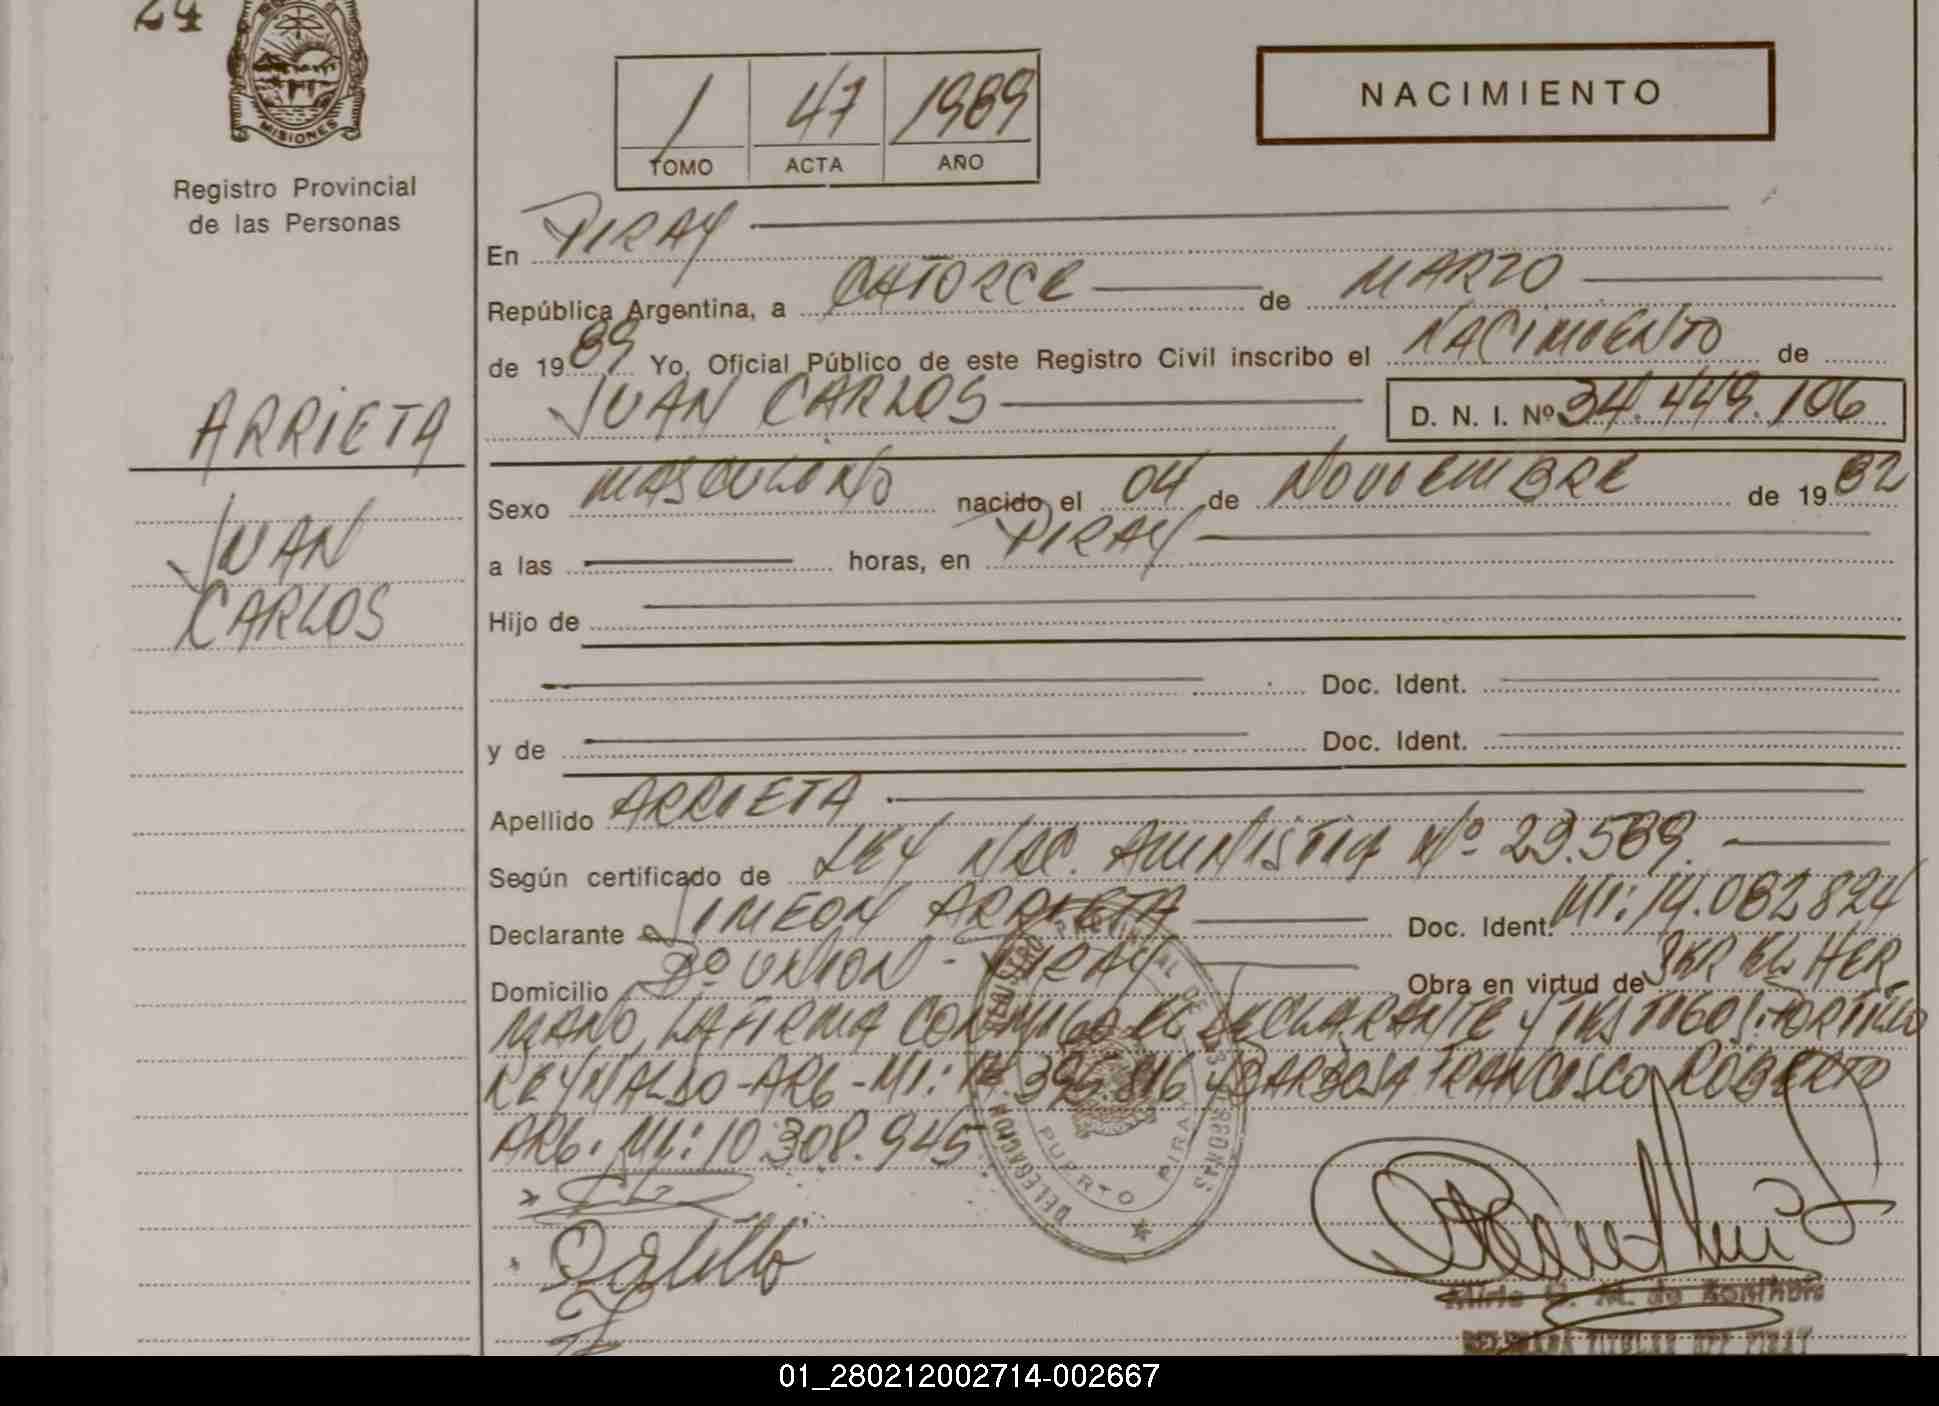 24
MISIONES
Registro Provincial
de las Personas
1 47 1989
TOMO ACTA AÑO
NACIMIENTO
En PIRAY
República Argentina, a CATORCE de MARZO
de 1989 Yo, Oficial Público de este Registro Civil inscribo el NACIMIENTO de
JUAN CARLOS D. N. I. Nº 34.449.106
ARRIETA
JUAN
CARLOS
Sexo MASCULINO nacido el 04 de NOVIEMBRE de 1982
a las horas, en PIRAY
Hijo de
Doc. Ident.
y de Doc. Ident.
Apellido ARRIETA
Según certificado de LEY NAC. AMNISTIA Nº 23.589.
Declarante SIMEON ARRIETA Doc. Ident. MI: 14.082824
Domicilio Bº UNION - PIRAY Obra en virtud de SER EL HER
MANO, LA FIRMA CONMIGO EL DECLARANTE Y TESTIGOS: PORTILLO
REYNALDO - ARG - MI: 395.816 y BARBOSA FRANCISCO ROBERTO
ARG. MI: 10.308.945
DELEGACION PUERTO PIRAY
01_280212002714-002667